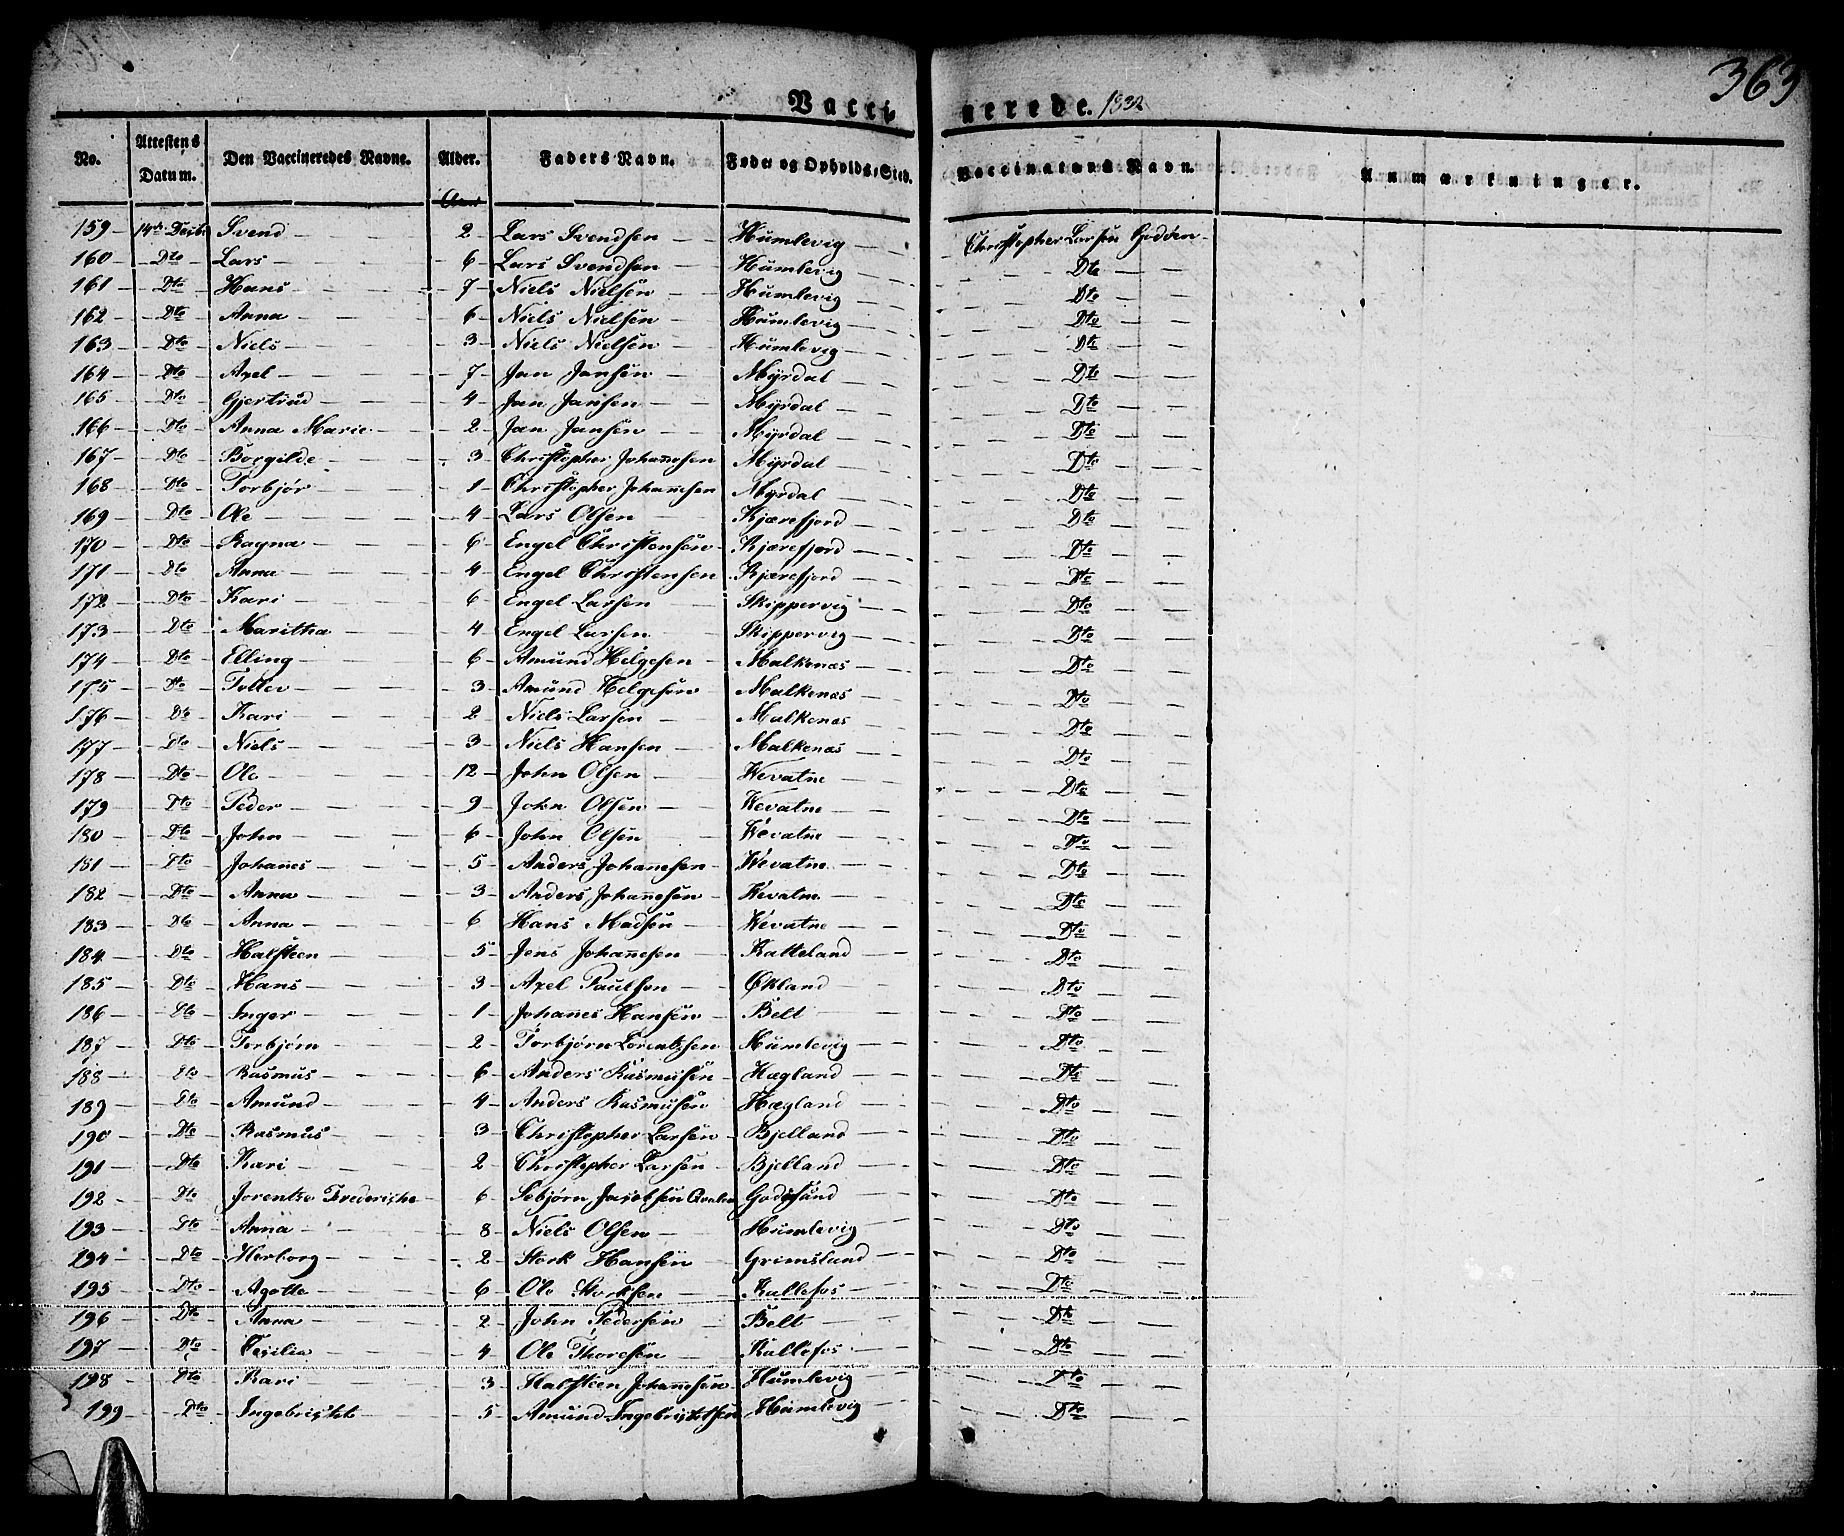 363
Vaccinerede. 1832
No. Attestens Datum. Den Vaccineredes Navne. Alder. Faders Navn. Føde og Opholds-Sted. Vaccinateurs Navn. Anmærkninger.
159 14de Decbr Svend 2 Lars Svendsen Humlevig Christopher Larsen
160 Dto Lars 6 Lars Svendsen Humlevig Dto
161 Dto Hans 7 Niels Nielsen Humlevig Dto
162 Dto Anna 6 Niels Nielsen Humlevig Dto
163 Dto Niels 3 Niels Nielsen Humlevig Dto
164 Dto Axel 7 Jan Jansen Myrdal Dto
165 Dto Gjertrud 4 Jan Jansen Myrdal Dto
166 Dto Anna Marie 2 Jan Jansen Myrdal Dto
167 Dto Borgilde 3 Christopher Johannesen Myrdal Dto
168 Dto Torbjør 1 Christopher Johannesen Myrdal Dto
169 Dto Ole 4 Lars Olsen Kjærefjord Dto
170 Dto Ragna 6 Engel Christensen Kjærefjord Dto
171 Dto Anna 4 Engel Christensen Kjærefjord Dto
172 Dto Kari 6 Engel Larsen Skippervig Dto
173 Dto Maritha 4 Engel Larsen Skippervig Dto
174 Dto Elling 6 Amund Helgesen Malkenæs Dto
175 Dto 3 Amund Helgesen Malkenæs Dto
176 Dto Kari 2 Niels Larsen Malkenæs Dto
177 Dto Niels 3 Niels Hansen Malkenæs Dto
178 Dto Ole 12 John Olsen Wevatne Dto
179 Dto Peder 9 John Olsen Wevatne Dto
180 Dto John 6 John Olsen Wevatne Dto
181 Dto Johannes 5 Anders Johannesen Wevatne Dto
182 Dto Anna 3 Anders Johannesen Wevatne Dto
183 Dto Anna 6 Hans Madsen Wevatne Dto
184 Dto Halsteen 5 Jens Johannesen Kalteland Dto
185 Dto Hans 3 Axel Paulsen Økland Dto
186 Dto Inger 1 Johannes Hansen Belt Dto
187 Dto Torbjørn 2 Torbjørn Lorentzsen Humlevig Dto
188 Dto Rasmus 6 Anders Rasmusen Hægland Dto
189 Dto Amund 4 Anders Rasmusen Hægland Dto
190 Dto Rasmus 3 Christopher Larsen Bjelland Dto
191 Dto Kari 2 Christopher Larsen Bjelland Dto
192 Dto Jorentze Frederiche 6 Sebjørn Jacobsen Godøsund Dto
193 Dto Anna 8 Niels Olsen Humlevig Dto
194 Dto Herborg 2 Stork Hansen Grimsland Dto
195 Dto Agatte 6 Ole Storksen Kallefos Dto
196 Dto Anna 2 John Pedersen Belt Dto
197 Dto Cesilia 4 Ole Thoresen Kallefos Dto
198 Dto Kari 3 Halsteen Johannesen Humlevig Dto
199 Dto Ingebrictte 5 Amund Ingebrictsen Humlevig Dto